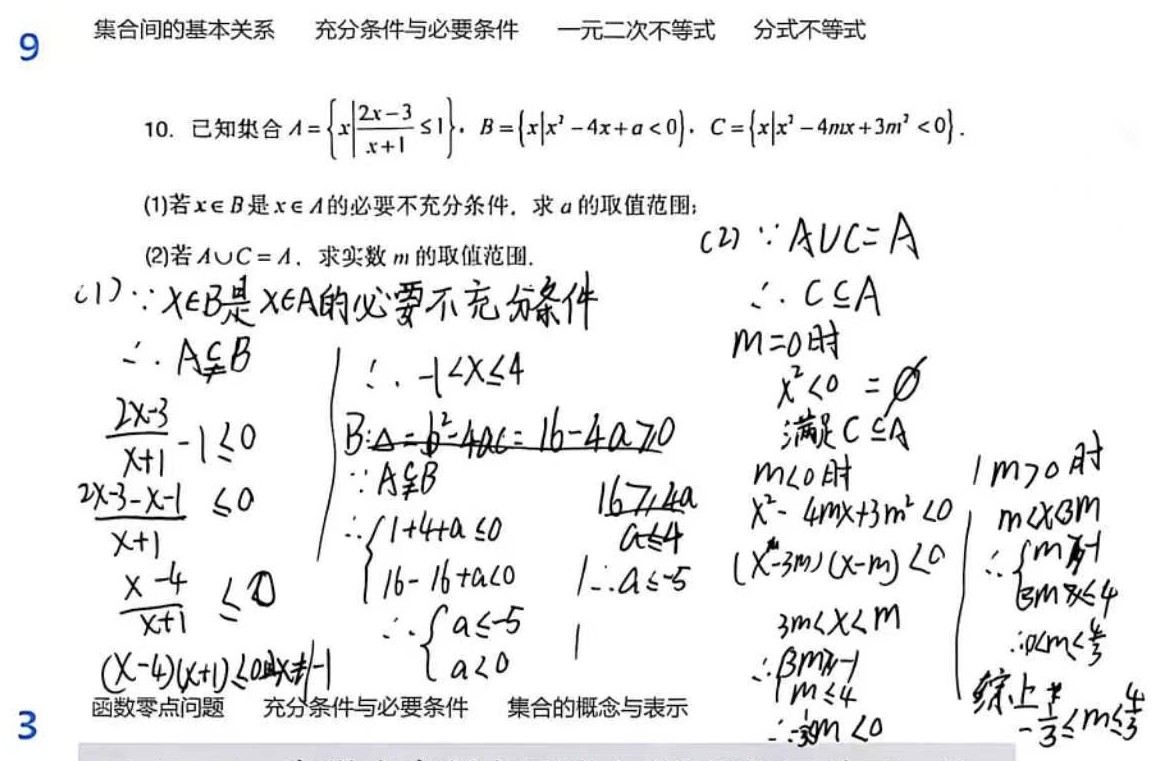 9
集合间的基本关系 充分条件与必要条件 一元二次不等式 分式不等式
10. 已知集合 A={x|(2x-3)/(x+1)≤1}, B={x|x²-4x+a<0}, C={x|x²-4mx+3m²<0}.
(1)若x∈B是x∈A的必要不充分条件, 求a的取值范围;
(2)若A∪C=A, 求实数m的取值范围.
(1) ∵ x∈B是x∈A的必要不充分条件
∴ A⫋B
(2x-3)/(x+1) -1≤0
(2x-3-x-1)/(x+1) ≤0
(x-4)/(x+1) ≤0
(x-4)(x+1)≤0且x≠-1
∴ -1<x≤4
B: Δ=b²-4ac=16-4a≥0
16≥4a
a≤4
∵ A⫋B
∴ {1+4+a≤0
16-16+a<0
∴ {a≤-5
a<0
∴ a≤-5
(2) ∵ A∪C=A
∴ C⊆A
m=0时
x²<0 =∅
满足C⊆A
m<0时
x²-4mx+3m²<0
(x-3m)(x-m)<0
3m<x<m
∴ {3m≥-1
m≤4
∴ -1/3≤m<0
m>0时
m<x<3m
∴ {m≥-1
3m≤4
∴ 0<m≤4/3
综上 -1/3≤m≤4/3
3
函数零点问题 充分条件与必要条件 集合的概念与表示